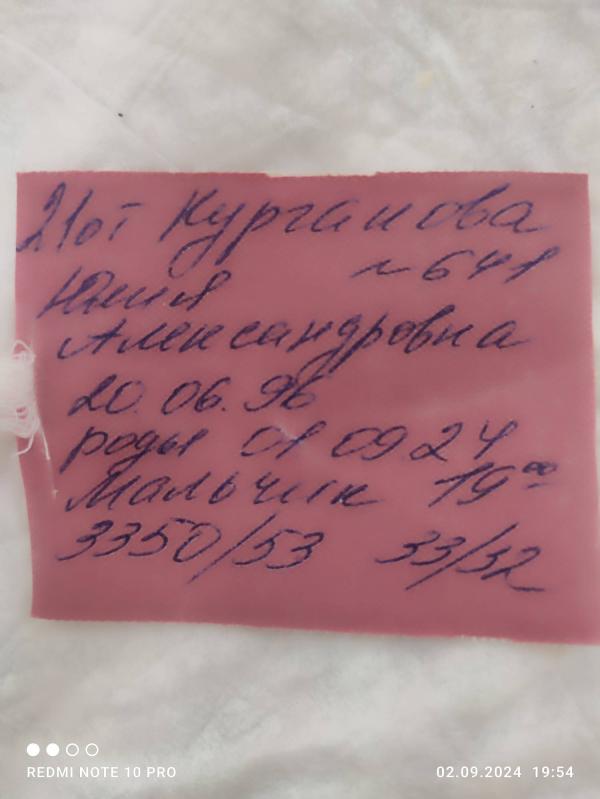 21от Курганова
Юлия №641
Александровна
20.06.96
роды 01 09 24
Мальчик 19⁰⁰
3350/53 33/32
REDMI NOTE 10 PRO 02.09.2024 19:54